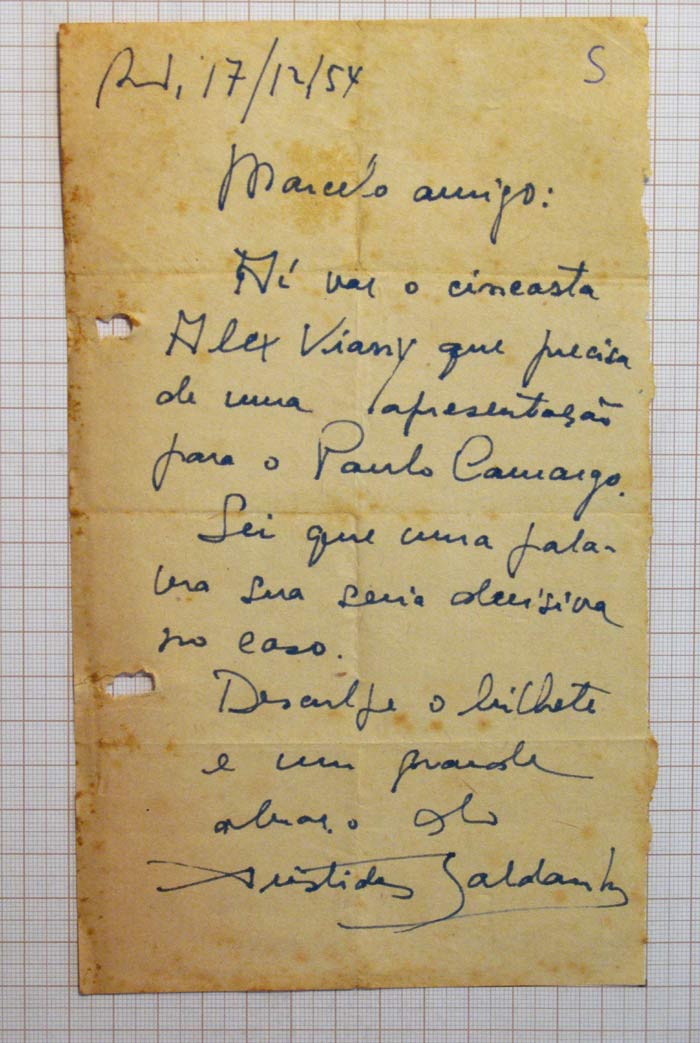 Rio, 17/12/54
S
Marcelo amigo:
Aí vae o cineasta
Alex Viany que precisa
de uma apresentação
para o Paulo Camargo.
Sei que uma pala-
vra sua seria decisiva
no caso.
Desculpe o bilhete
e um grande
abraço do
Aristides Saldanha